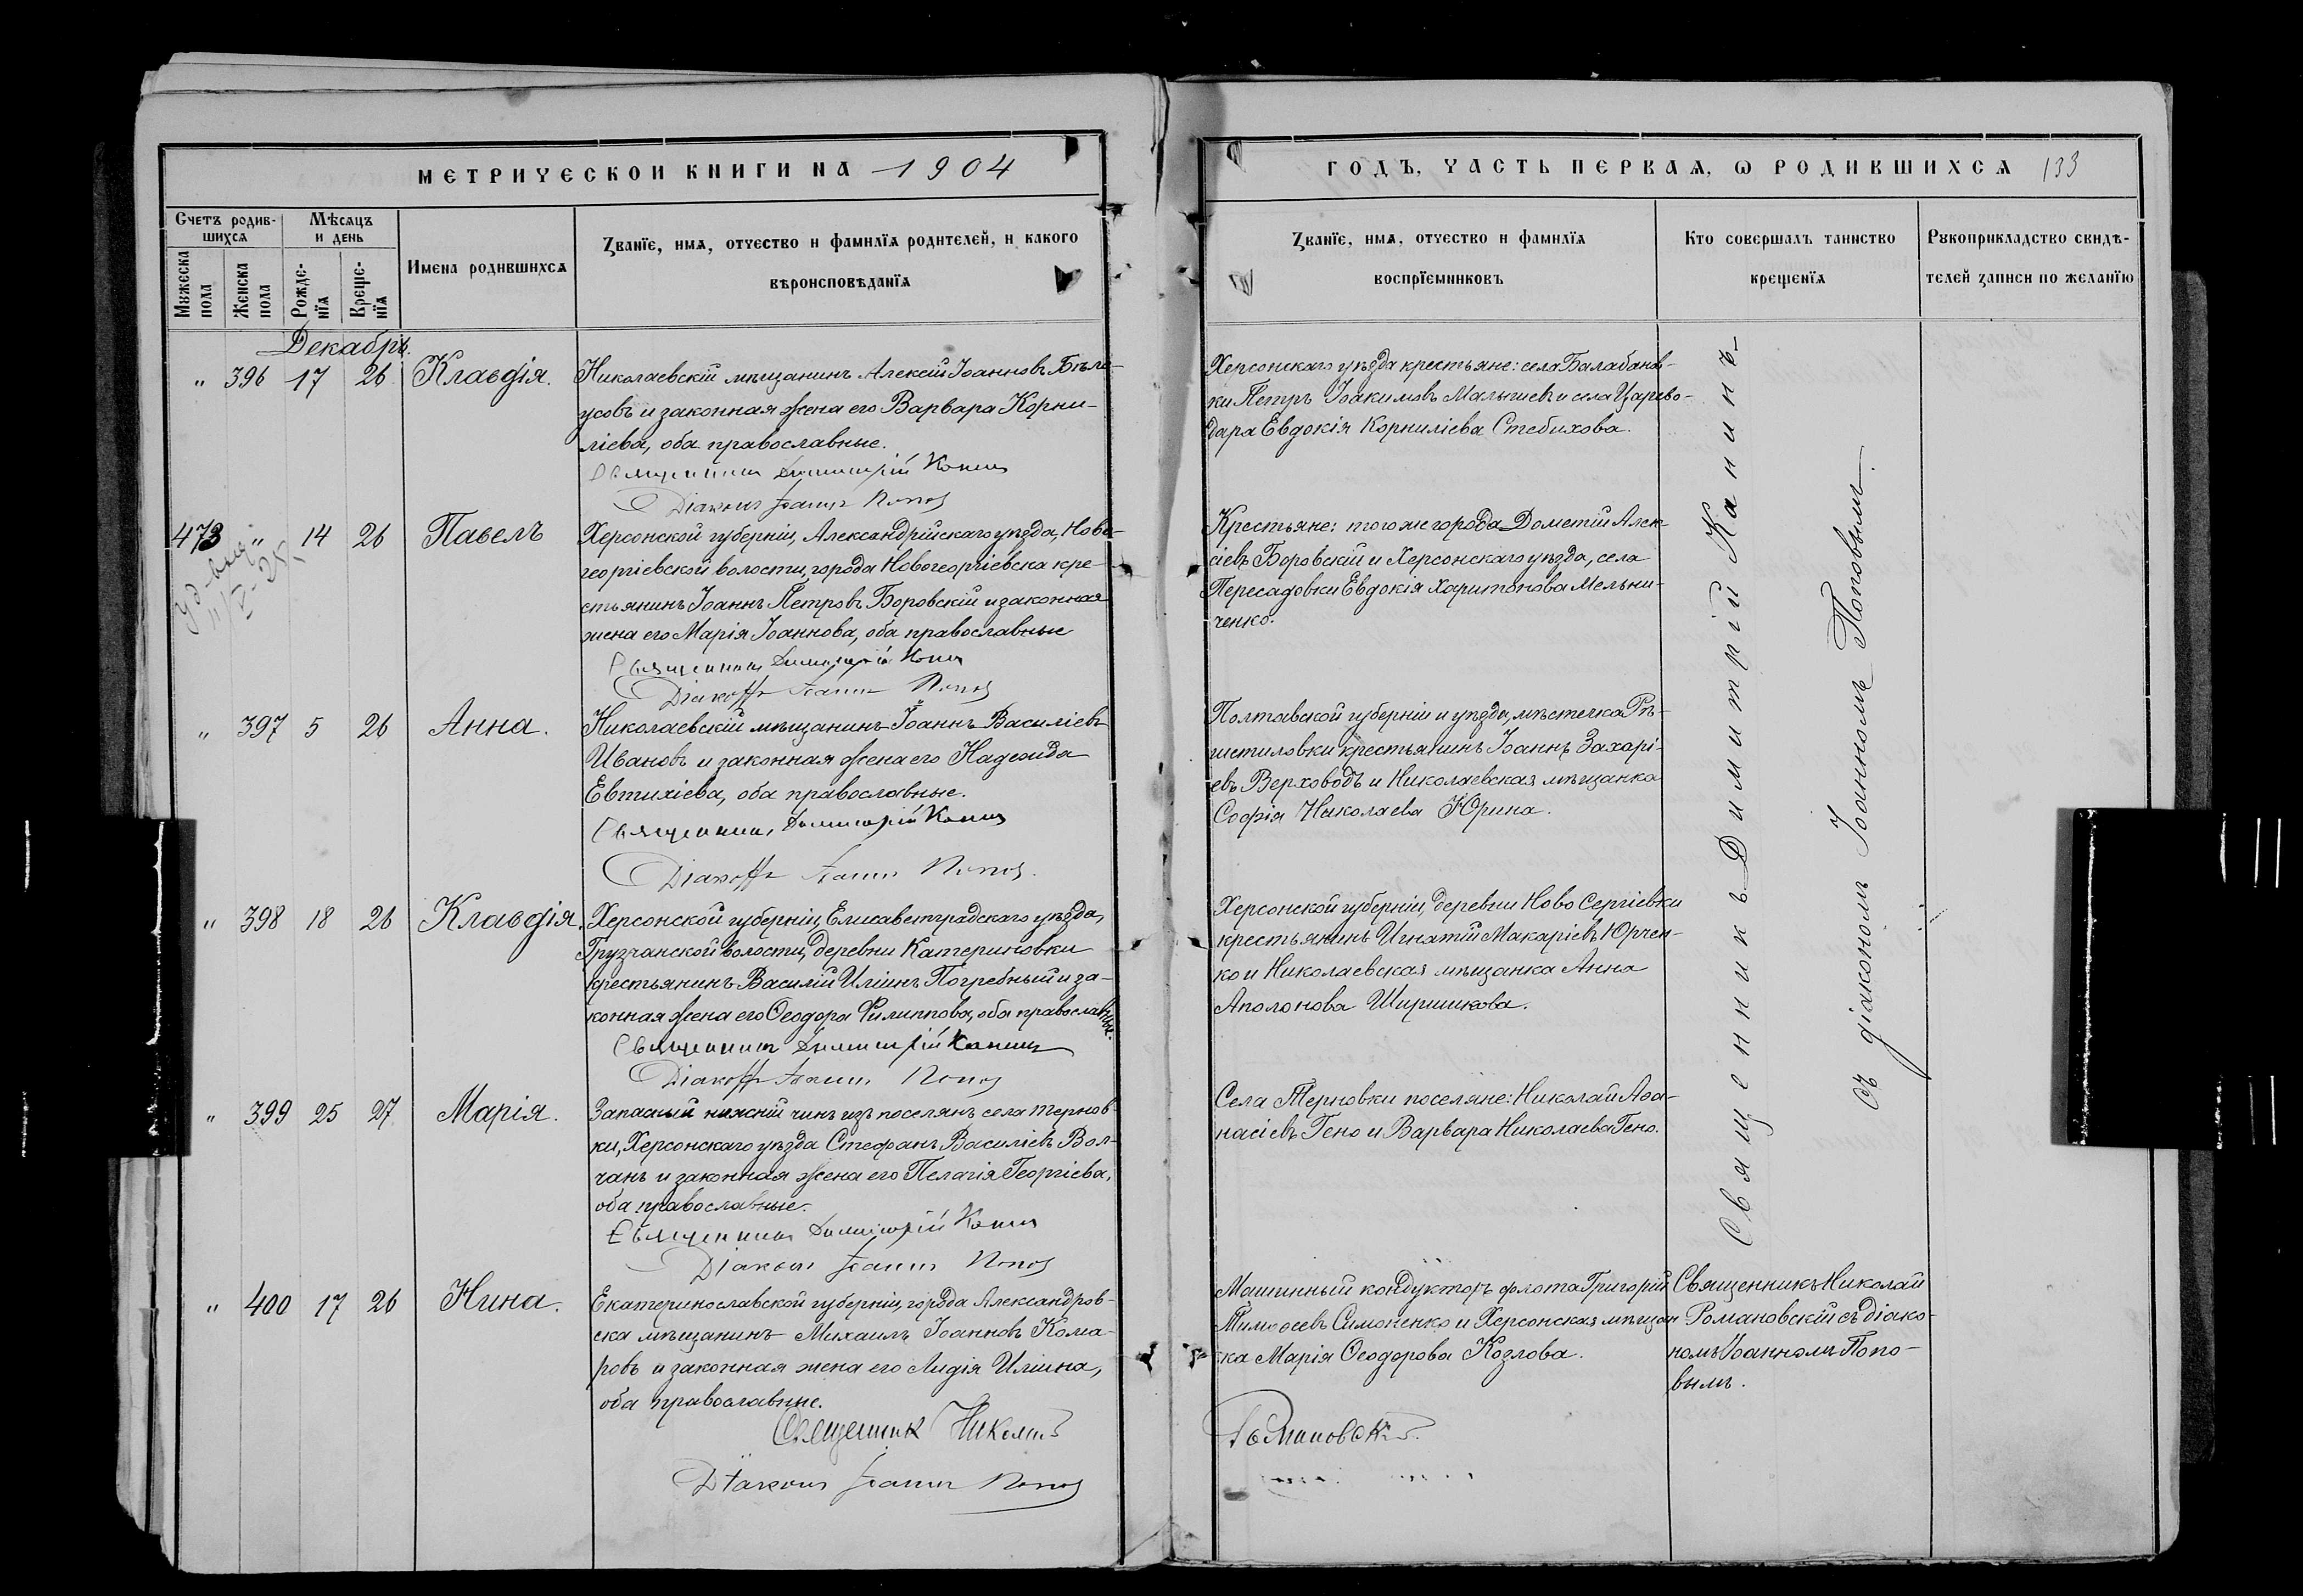 МЕТРИЧЕСКОЙ КНИГИ НА 1904
Счетъ родив-
шихся
Мѣсяцъ
и день
Мужеска
пола
Женска
пола
Рожде-
нїя
Креще-
нїя
Имена родившихся
Званїе, имя, отчество и фамилїя родителей, и какого
вѣроисповѣданїя
Декабрь.
" 396 17 26 Клавдія.
Николаевскій мѣщанинъ Алексій Іоанновъ Бѣло-
усовъ и законная жена его Варвара Корни-
ліева, оба православные.
Священникъ Димитрій Канинъ
Діаконъ Іоаннъ Поповъ
473 " 14 26 Павелъ
Херсонской губерніи, Александрійскаго уѣзда, Ново-
георгіевской волости, города Новогеоргіевска кре-
стьянинъ Іоаннъ Петровъ Боровскій и законная
жена его Марія Іоаннова, оба православные
Священникъ Димитрій Канинъ
Діаконъ Іоаннъ Поповъ
" 397 5 26 Анна.
Николаевскій мѣщанинъ Іоаннъ Василіевъ
Ивановъ и законная жена его Надежда
Евтихіева, оба православные.
Священникъ Димитрій Канинъ
Діаконъ Іоаннъ Поповъ.
" 398 18 26 Клавдія.
Херсонской губерніи, Елисаветградскаго уѣзда,
Грузчанской волости, деревни Катериновки
крестьянинъ Василій Иліинъ Погребный и за-
конная жена его Ѳеодора Филиппова, оба православные.
Священникъ Димитрій Канинъ
Діаконъ Іоаннъ Поповъ
" 399 25 27 Марія.
Запасный нижній чинъ изъ поселянъ села Тернов-
ки, Херсонскаго уѣзда Стефанъ Василіевъ Вол-
чанъ и законная жена его Пелагія Георгіева,
оба православные.
Священникъ Димитрій Канинъ
Діаконъ Іоаннъ Поповъ
" 400 17 26 Нина.
Екатеринославской губерніи, города Александров-
ска мѣщанинъ Михаилъ Іоанновъ Кома-
ровъ и законная жена его Лидія Иліина,
оба православные.
Священникъ Николай
Діаконъ Іоаннъ Поповъ
ГОДЪ, ЧАСТЬ ПЕРВАЯ, Ѡ РОДИВШИХСЯ 133
Званїе, имя, отчество и фамилїя
воспрїемниковъ
Кто совершалъ таинство
крещенїя
Рукоприкладство свидѣ-
телей записи по желанїю
Херсонскаго уѣзда крестьяне: села Балабанов-
ки Петръ Іоакимовъ Малышевъ и села Царево-
дара Евдокія Корниліева Стебихова.
Крестьяне: того же города Дометій Алек-
сіевъ Боровскій и Херсонскаго уѣзда, села
Пересадовки Евдокія Харитонова Мельни-
ченко.
Полтавской губерніи и уѣзда, мѣстечка Рѣ-
шетиловки крестьянинъ Іоаннъ Захарі-
евъ Верховодъ и Николаевская мѣщанка
Софія Николаева Юрина.
Херсонской губерніи, деревни Ново Сергіевки
крестьянинъ Игнатій Макаріевъ Юрчен-
ко и Николаевская мѣщанка Анна
Аполонова Ширшикова.
Села Терновки поселяне: Николай Аѳа-
насіевъ Гено и Варвара Николаева Гено.
Машинный кондукторъ флота Григорій
Тимоѳеевъ Симоненко и Херсонская мѣщан
ка Марія Ѳеодорова Козлова.
Романовскій.
Священникъ Димитрій Канинъ
съ діакономъ Іоанномъ Поповымъ.
Священникъ Николай
Романовскій съ діако-
номъ Іоанномъ Попо-
вымъ.